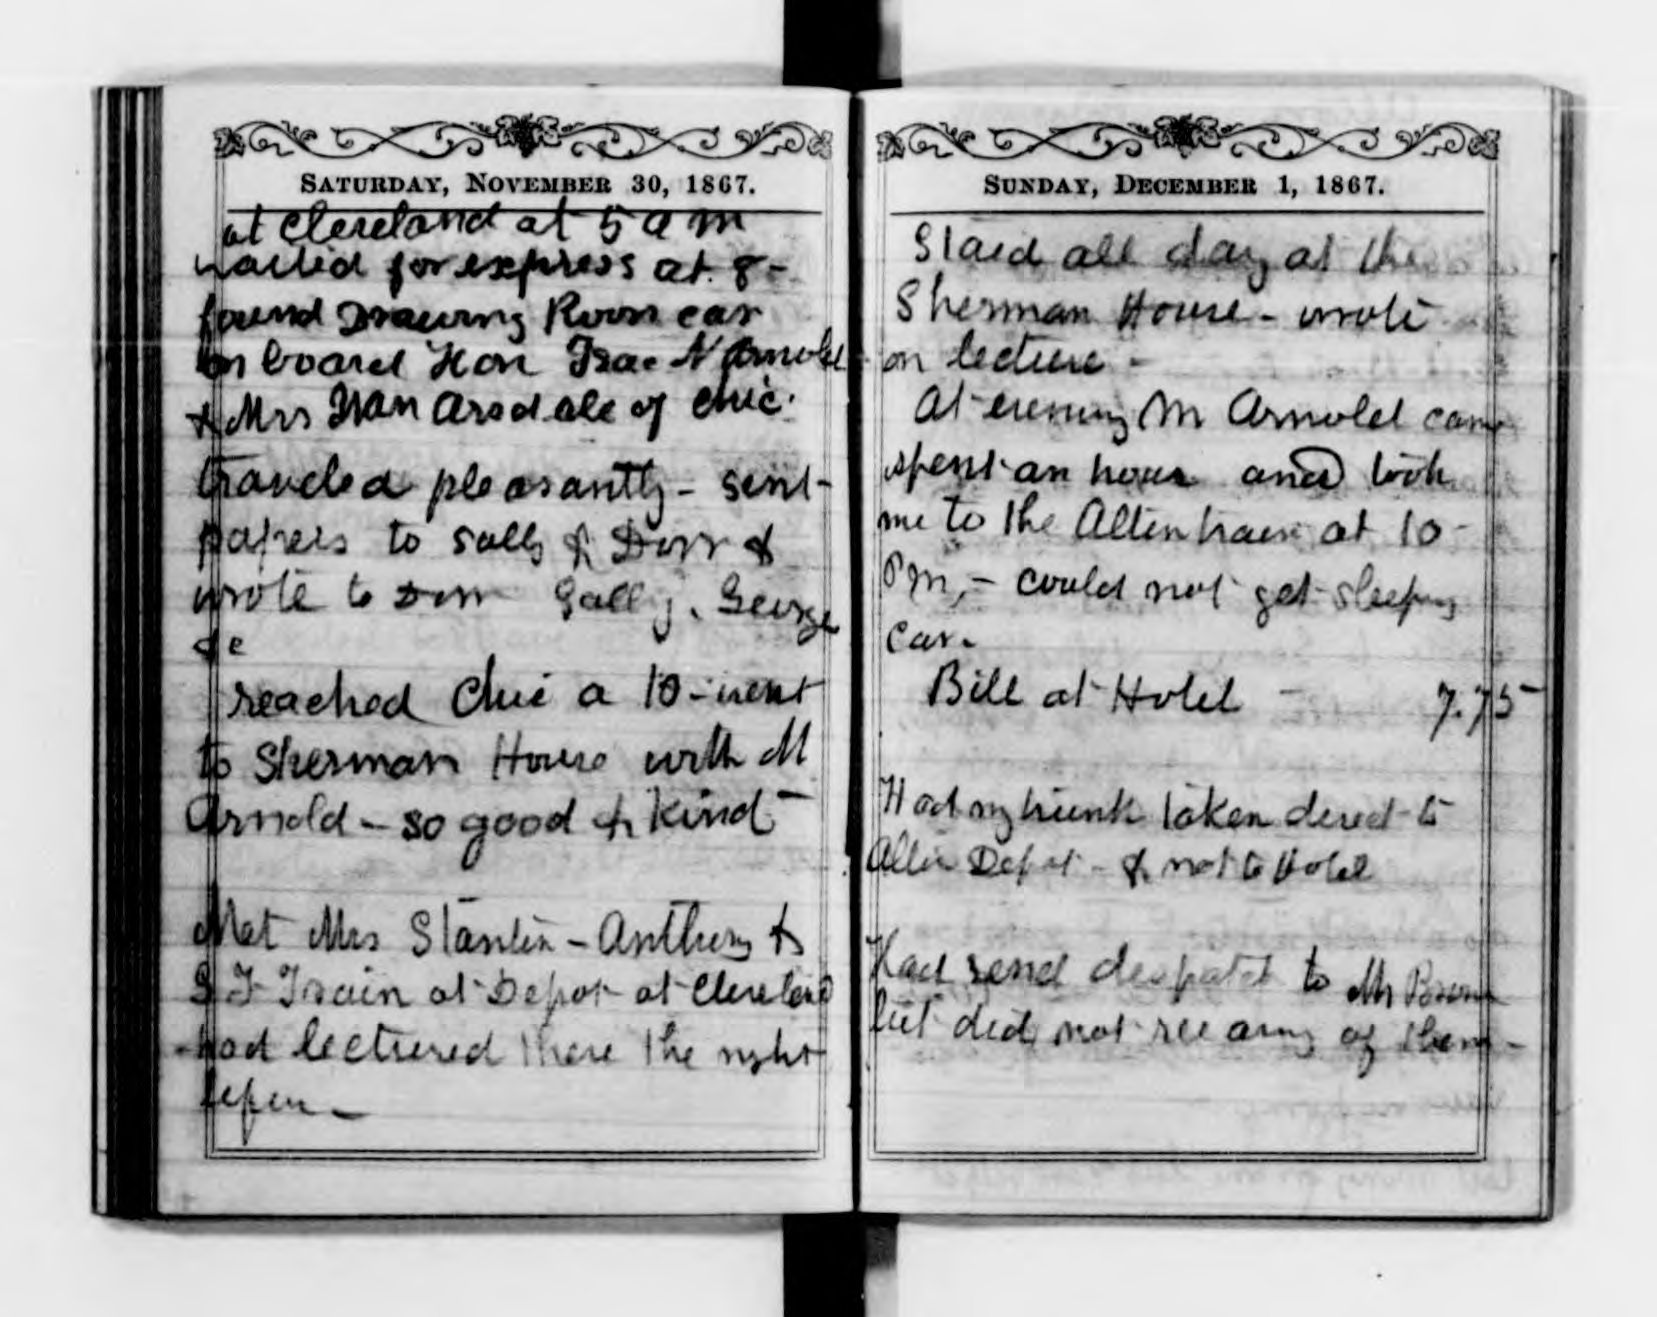 SATURDAY, NOVEMBER 30, 1867.
at Cleveland at 5 a m
waited for express at 8 -
found Drawing Room car
on board Hon Isac N Arnold
& Mrs Van Arsdale of Chic.
traveled pleasantly - sent
papers to Sally & Dorr &
wrote to Dorr Sally, George
&c
reached Chic a 10 - went
to Sherman House with M
Arnold - so good & kind -
Met Mrs Stanton - Anthony &
G F Train at Depot at Cleveland
had lectured there the night
before -
SUNDAY, DECEMBER 1, 1867.
Staid all day at the
Sherman House - wrote
on lecture -
At evening Mr Arnold came
spent an hour and took
me to the Alton train at 10 -
P m, - could not get sleeping
car.
Bill at Hotel - 7.75
Had my trunk taken direct to
Alton Depot - & not to Hotel
Had send despatch to Mr Brown
but did not see any of them -